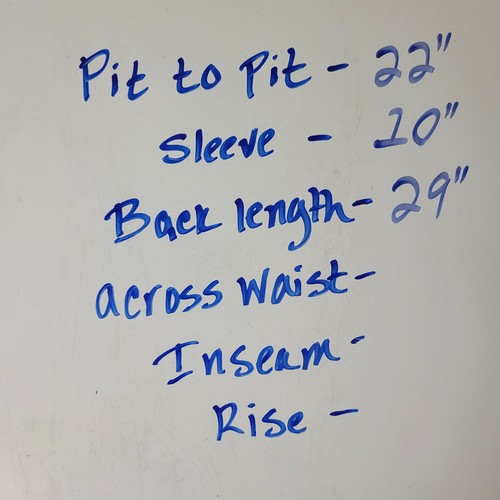 Pit to Pit - 22"
Sleeve - 10"
Back length - 29"
across waist -
Inseam -
Rise -